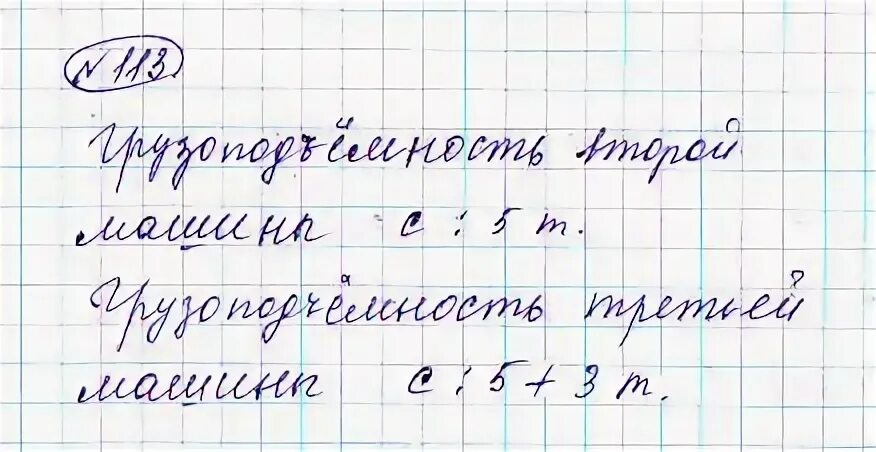 № 113
Грузоподъёмность второй
машины с : 5 т.
Грузоподъёмность третьей
машины с : 5 + 3 т.